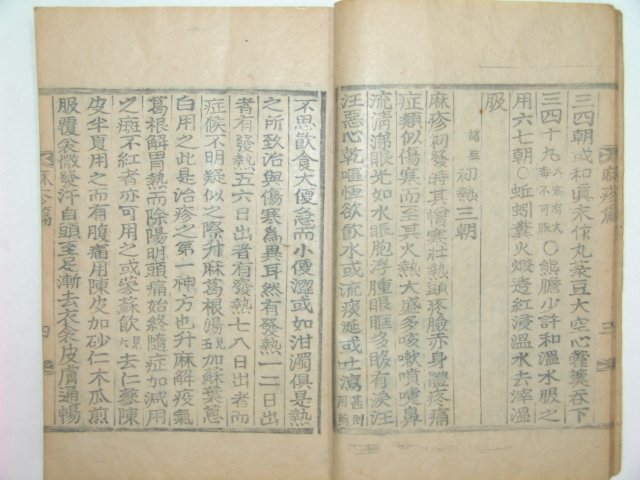 三四朝或和眞末作丸菉豆大空心藿羹呑下
三四十丸毒不可服小有大○熊膽少許和溫水服之
用六七朝○蚯蚓糞火煅透紅浸溫水去滓溫
服
諸症 初熱三朝
麻疹初發時其憎寒壯熱頭疼臉赤身體疼痛
症類似傷寒而至其火熱大盛多咳嗽噴嚏鼻
流淸涕眼光如水眼胞浮腫眼眶多眵有淚汪
汪惡心乾嘔恒欲飮水或流痰延或吐瀉甚則
不思飮食大便急而小便澀或如泔濁俱是熱
之所致治與傷寒爲異耳然有發熱一二日出
者有發熱五六日出者有發熱七八日出者而
症候不明疑似之際升麻葛根湯見五加蘇葉葱
白用之此是治疹之第一神方也升麻解疫氣
葛根解胃熱而除陽明頭痛始終隨症加減用
之斑不紅者亦可用之或蔘蘇飮見六去仁蔘陳
皮半夏用之而有腹痛用陳皮加砂仁木瓜煎
服覆衾微發汗自頭至足漸去衣衾皮膚通暢
麻疹篇
四